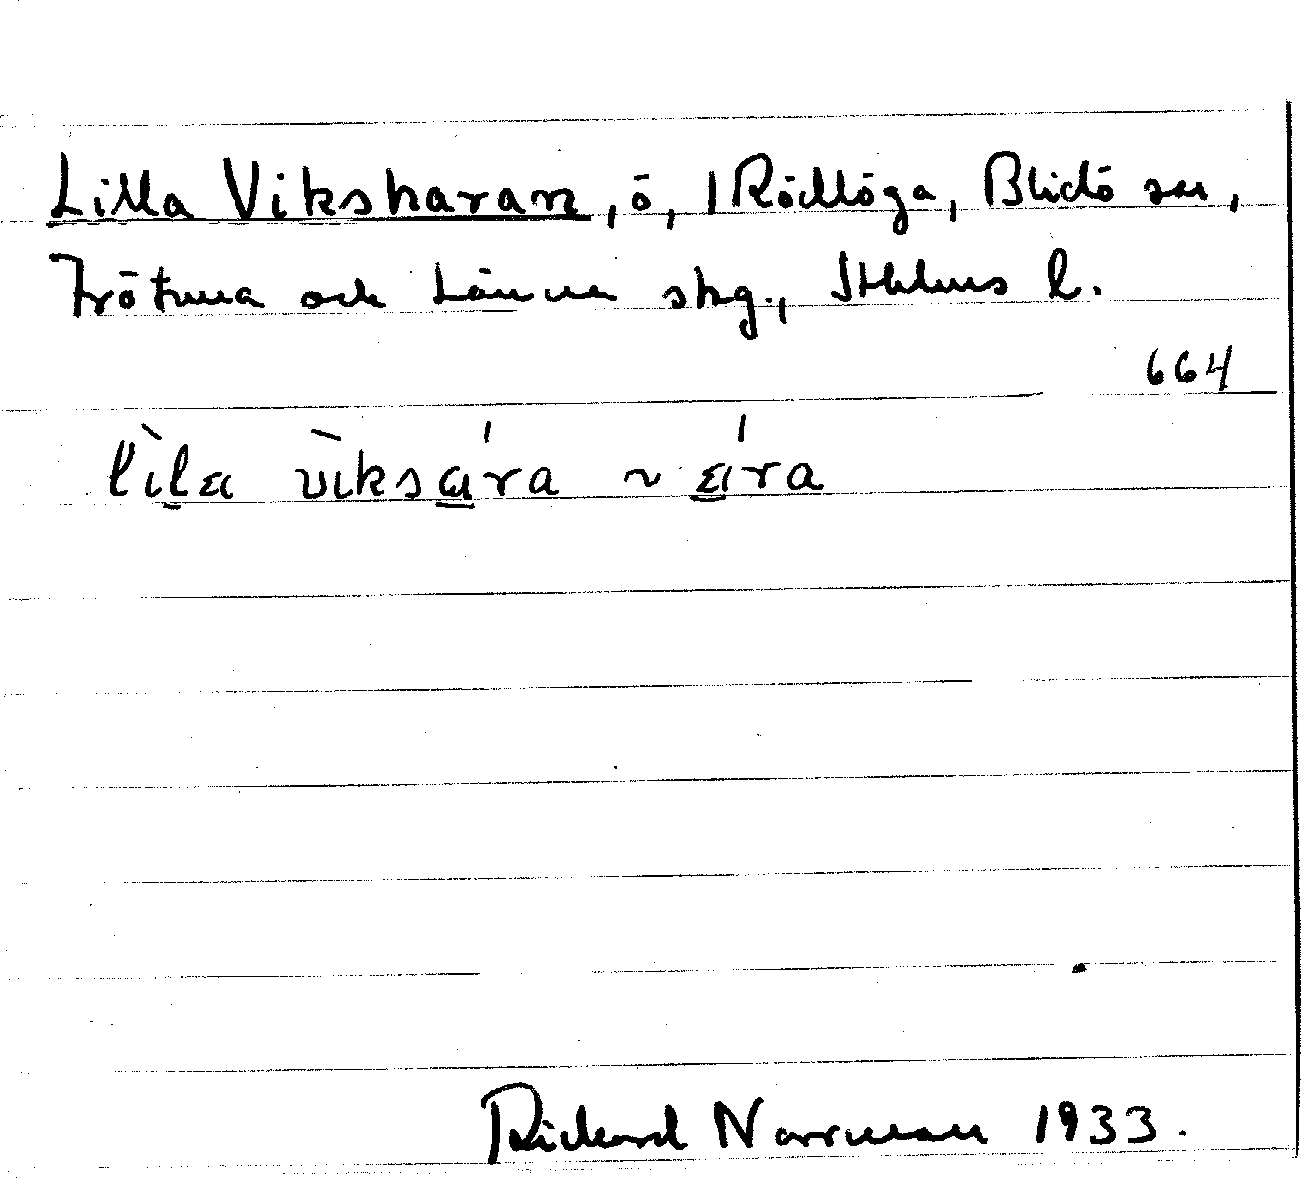 Lilla Viksharan, ö, 1 Rödlöga, Blidö sn,
Frötuna och Länna skg., Sthlms l.
664
Rickard Norrman 1933.